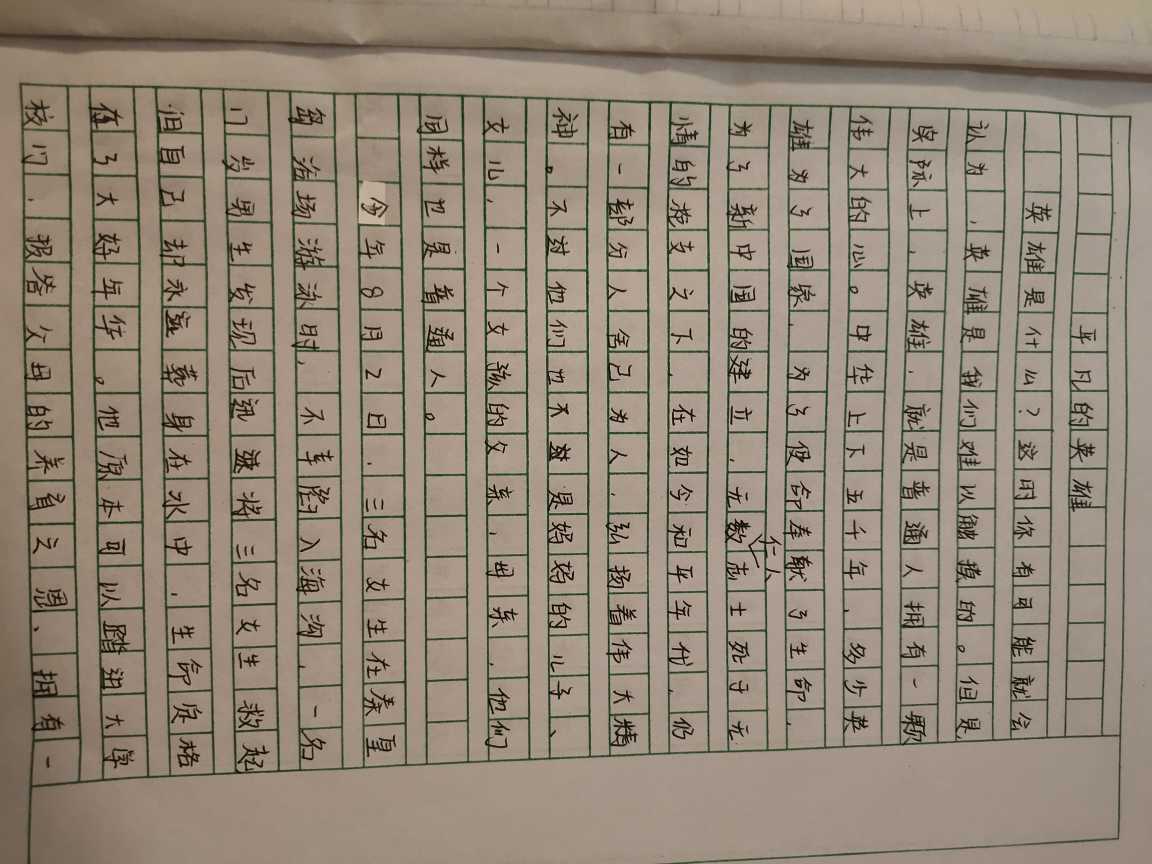 平凡的英雄
英雄是什么?这时你有可能就会
认为,英雄是我们难以触摸的。但是
实际上,英雄,就是普通人拥有一颗
伟大的心。中华上下五千年,多少英
雄为了国家,为了使命奉献了生命,
为了新中国的建立,无数仁人志士死于无
情的枪支之下,在如今和平年代,仍
有一部分人舍己为人,弘扬着伟大精
神。不对他们也不过是妈妈的儿子、
女儿,一个女孩的父亲,母亲,他们
同样也是普通人。
今年8月2日,三名女生在秦皇
岛浴场游泳时,不幸陷入海沟,一名
17岁男生发现后迅速将三名女生救起
但自己却永远葬身在水中,生命定格
在了大好年华。他原本可以踏进大学
校门,报答父母的养育之恩、拥有一